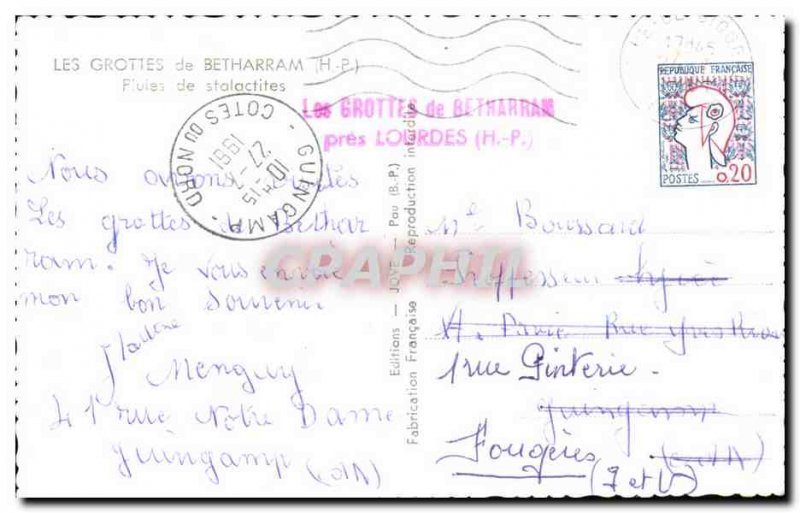 LES GROTTES de BETHARRAM (H.-P.)
Pluies de stalactites
Les GROTTES de BETHARRAM
près LOURDES (H.-P.)
17H45
REPUBLIQUE FRANÇAISE
POSTES 0,20
GUINGAMP
COTES DU NORD
10-15
27-7
1961
Nous avons visités
Les grottes de Bethar
ram. Je vous envoie
mon bon souvenir
Menguy
41 rue Notre Dame
Guingamp (CdN)
Editions — JOVE — Pau (B.-P.)
Fabrication Française Reproduction interdite
CPAPHIL
Mle Boussard
Professeur Lycée
A. Pavie Rue
1 rue Pinterie.
Guingamp
Fougères (CdN)
(I et V)